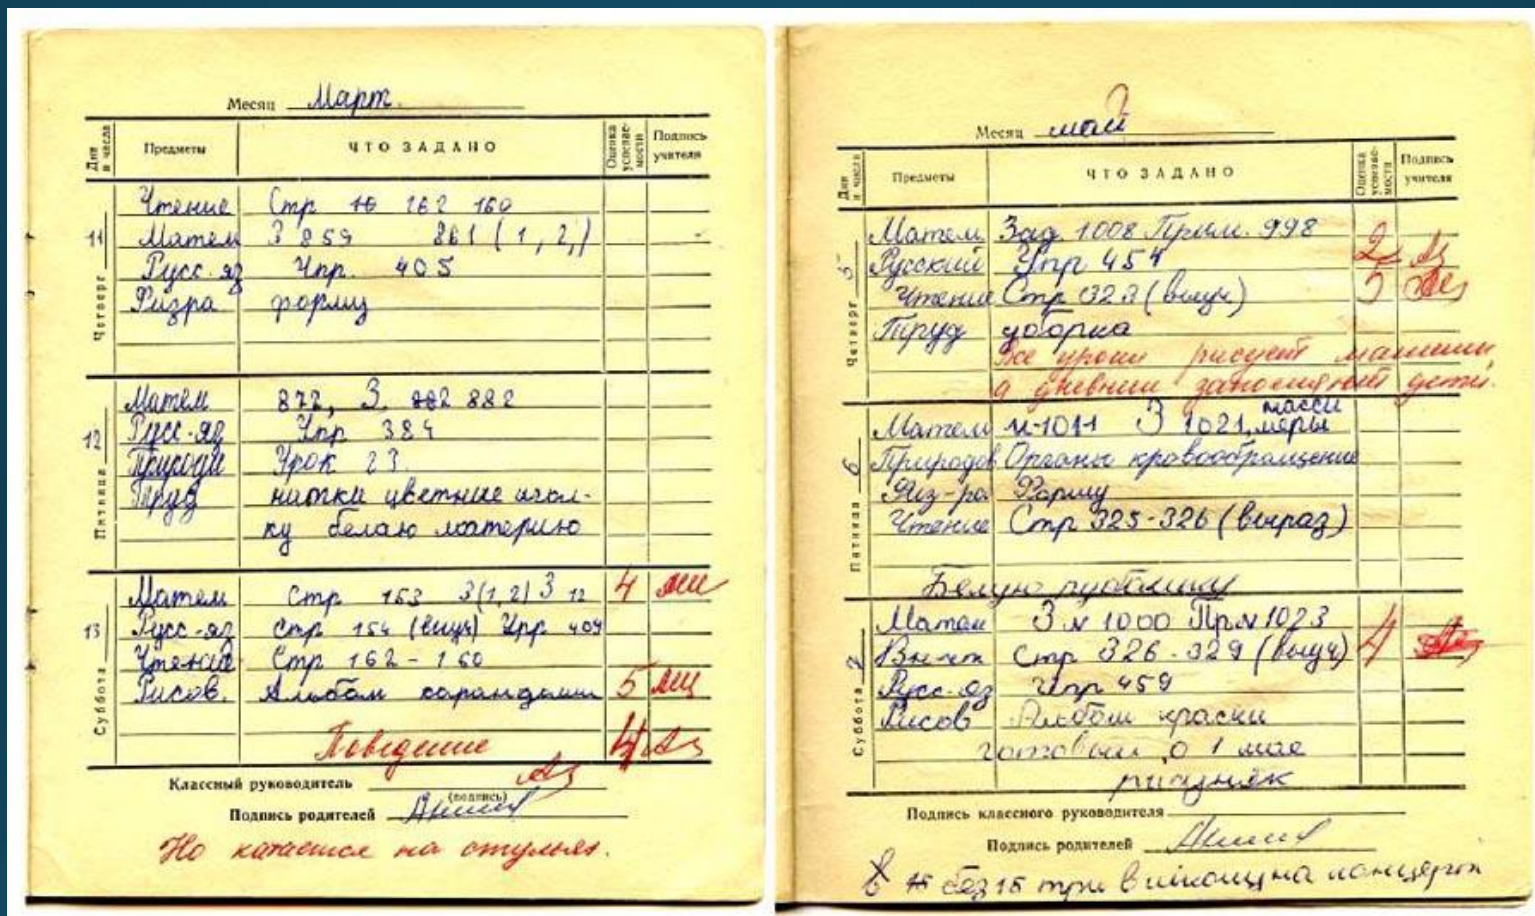 Месяц Март.
Дни и числа Предметы ЧТО ЗАДАНО Оценка успевае- мости Подпись учителя
Четверг 11
Чтение Стр 162 160
Матем З 859 861 (1, 2,)
Русс-яз Упр. 405
Физра форму
Пятница 12
Матем 872, З. 882
Русс-яз Упр 384
Природ Урок 23.
Труд нитки цветные игол-
ку белаю материю
Суббота 13
Матем Стр 163 З(1,2) З 12 4
Русс-яз Стр 154 (выуч) Упр 409
Чтение Стр 162-160
Рисов. Альбом карандаши 5
Поведение 4
Классный руководитель
(подпись)
Подпись родителей
Но катается на стульях.
Месяц май
Дни и числа Предметы ЧТО ЗАДАНО Оценка успевае- мости Подпись учителя
Четверг 5
Матем Зад 1008 Прим. 998
Русский Упр 454 2
Чтение Стр 323 (выуч) 5
Труд уборка
На уроке рисует машины,
а дневник заполняют дети.
Пятница 6
Матем N-1011 З 1021, массы
меры
Природов Органы кровообращение
Физ-ра Форму
Чтение Стр 325-326 (выраз)
Белую рубашку
Суббота 2
Матем З N 1000 Пр N 1023
Вн-чт Стр 326-329 (выуч) 4
Русс-яз Упр 459
Рисов Альбом краски
о 1 мае
Подпись классного руководителя
Подпись родителей
без 15 три в школу на концерт